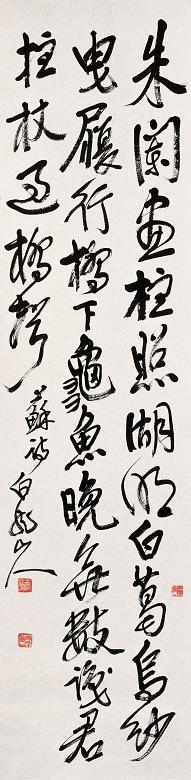 朱闌畫柱照湖明白葛烏紗
曳履行橋下龜魚晚無數識君
拄杖過橋聲
蘇詩 白龍山人